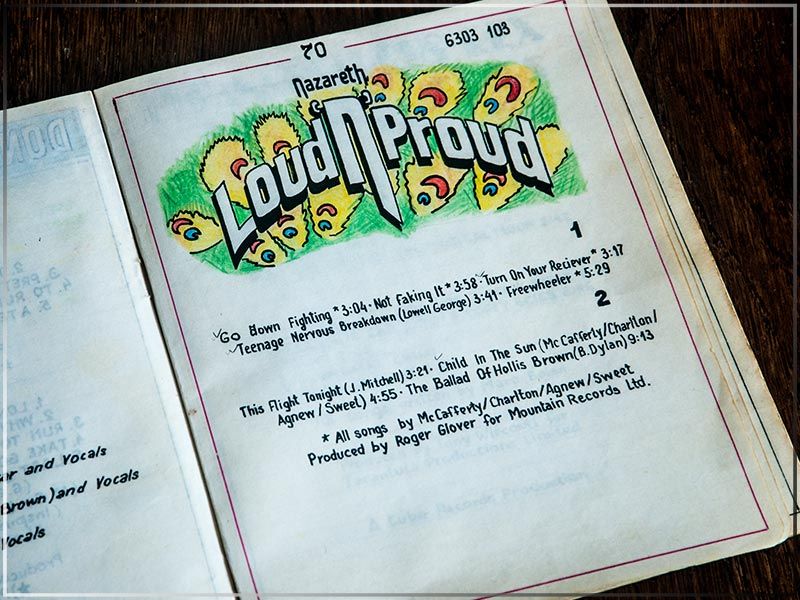 70
6303 103
Nazareth
Loud'N'Proud
1
Go Down Fighting * 3:04 · Not Faking It * 3:58 · Turn On Your Reciever * 3:17
Teenage Nervous Breakdown (Lowell George) 3:41 · Freewheeler * 5:29
2
This Flight Tonight (J. Mitchell) 3:21 · Child In The Sun (Mc Cafferty/Charlton/
Agnew/Sweet) 4:55 · The Ballad Of Hollis Brown (B. Dylan) 9:13
* All songs by McCafferty/Charlton/Agnew/Sweet
Produced by Roger Glover for Mountain Records Ltd.
and Vocals
Brown) and Vocals
Vocals